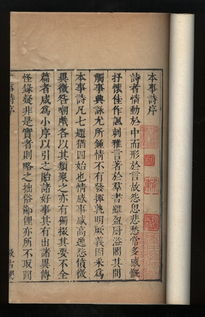 本事詩序
詩者情動於中而形於言故怨思悲愁常多感慨
抒懷佳作諷刺雅言著於羣書雖盈廚溢閣其間
觸事興詠尤所鍾情不有發揮孰明厥義因采為
本事詩凡七題猶四始也情感事感高逸怨憤徵
異徵咎嘲戲各以其類聚之亦有獨掇其要不全
篇者咸為小序以引之貽諸好事其有出諸異傳
怪錄疑非是實者則略之拙俗鄙俚亦所不取聞